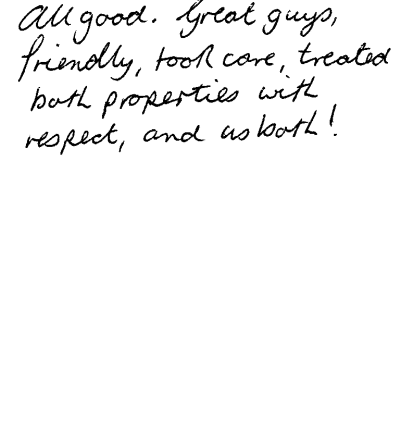 All good. Great guys,
friendly, took care, treated
both properties with
respect, and us both!